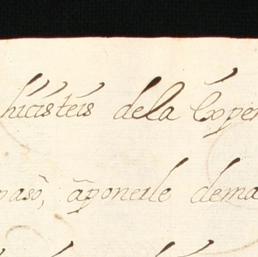 hicisteis dela Exper
paso, aponerle dema